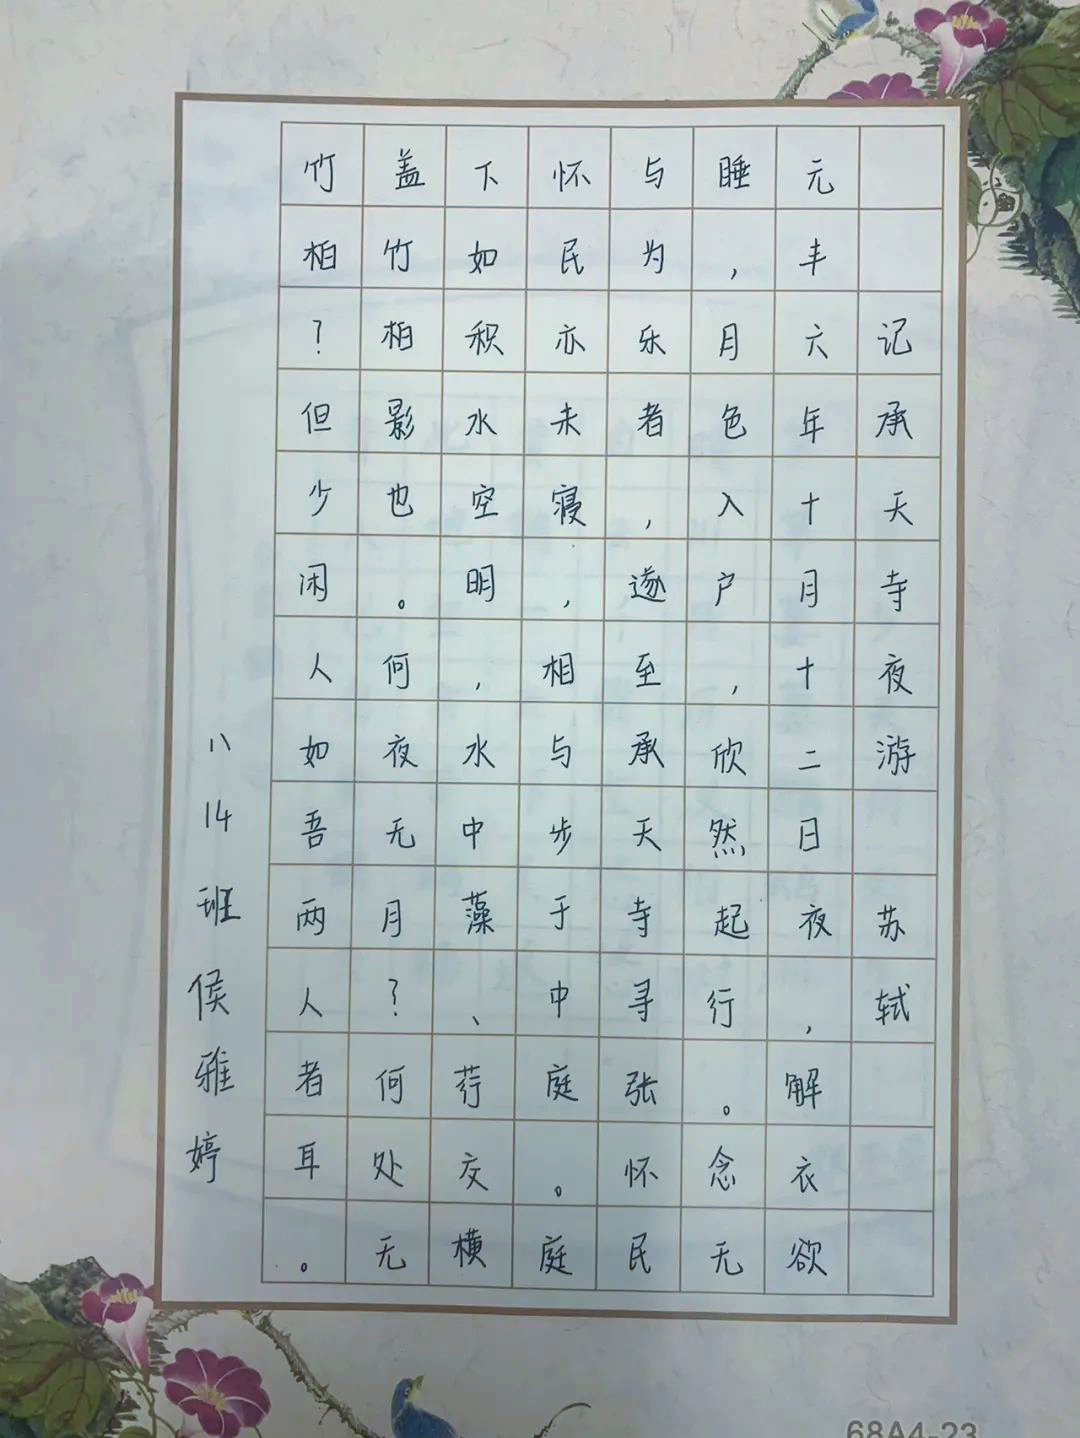 记承天寺夜游 苏轼
元丰六年十月十二日夜,解衣欲
睡,月色入户,欣然起行。念无
与为乐者,遂至承天寺寻张怀民
怀民亦未寝,相与步于中庭。庭
下如积水空明,水中藻、荇交横
盖竹柏影也。何夜无月?何处无
竹柏?但少闲人如吾两人者耳。
八14班侯雅婷
68A4-23